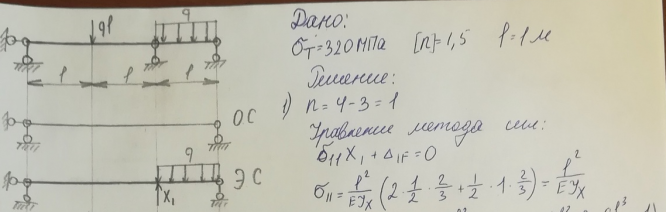 qℓ
q
ℓ
ℓ
ℓ
ОС
q
X₁
ЭС
Дано:
σт=320 МПа [n]=1,5 ℓ=1м
Решение:
1) n = 4-3 = 1
Уравнение метода сил:
δ₁₁X₁ + Δ₁F = 0
δ₁₁ = ℓ²/EJx (2·1/2·2/3 + 1/2·1·2/3) = ℓ²/EJx